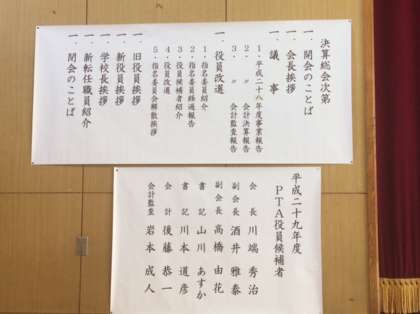 決算総会次第
一．開会のことば
一．会長挨拶
一．議事
１．平成二十八年度事業報告
２．〃 会計決算報告
３．〃 会計監査報告
一．役員改選
１．指名委員紹介
２．指名委員経過報告
３．役員候補者紹介
４．役員改選
５．指名委員会解散挨拶
一．旧役員挨拶
一．新役員挨拶
一．学校長挨拶
一．新転任職員紹介
一．閉会のことば
平成二十九年度
ＰＴＡ役員候補者
会長 川端秀治
副会長 酒井雅泰
副会長 高橋由花
書記 山川あすか
書記 川本道彦
会計 後藤恭一
会計監査 岩本成人